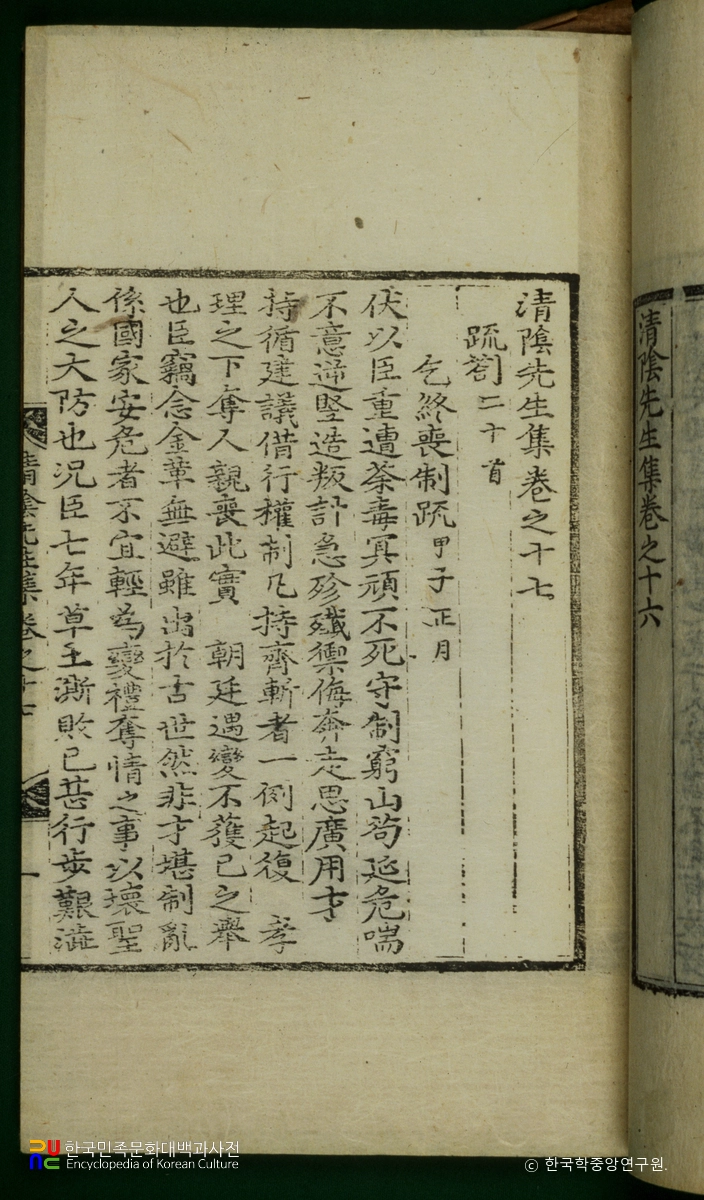 清陰先生集卷之十六
清陰先生集卷之十七
疏箚二十首
乞終喪制疏甲子正月
伏以臣重遭荼毒冥頑不死守制窮山苟延危喘
不意逆堅造叛計急殄殲禦侮奔走思廣用才
持循建議借行權制凡持齊斬者一例起復 孝
理之下奪人親喪此實 朝廷遇變不獲已之舉
也臣竊念金革無避雖出於古世然非才堪制亂
係國家安危者不宜輕為變禮奪情之事以壞聖
人之大防也況臣七年草土澌敗已甚行步艱澁
清陰先生集卷之十七 一
한국민족문화대백과사전
Encyclopedia of Korean Culture
© 한국학중앙연구원.